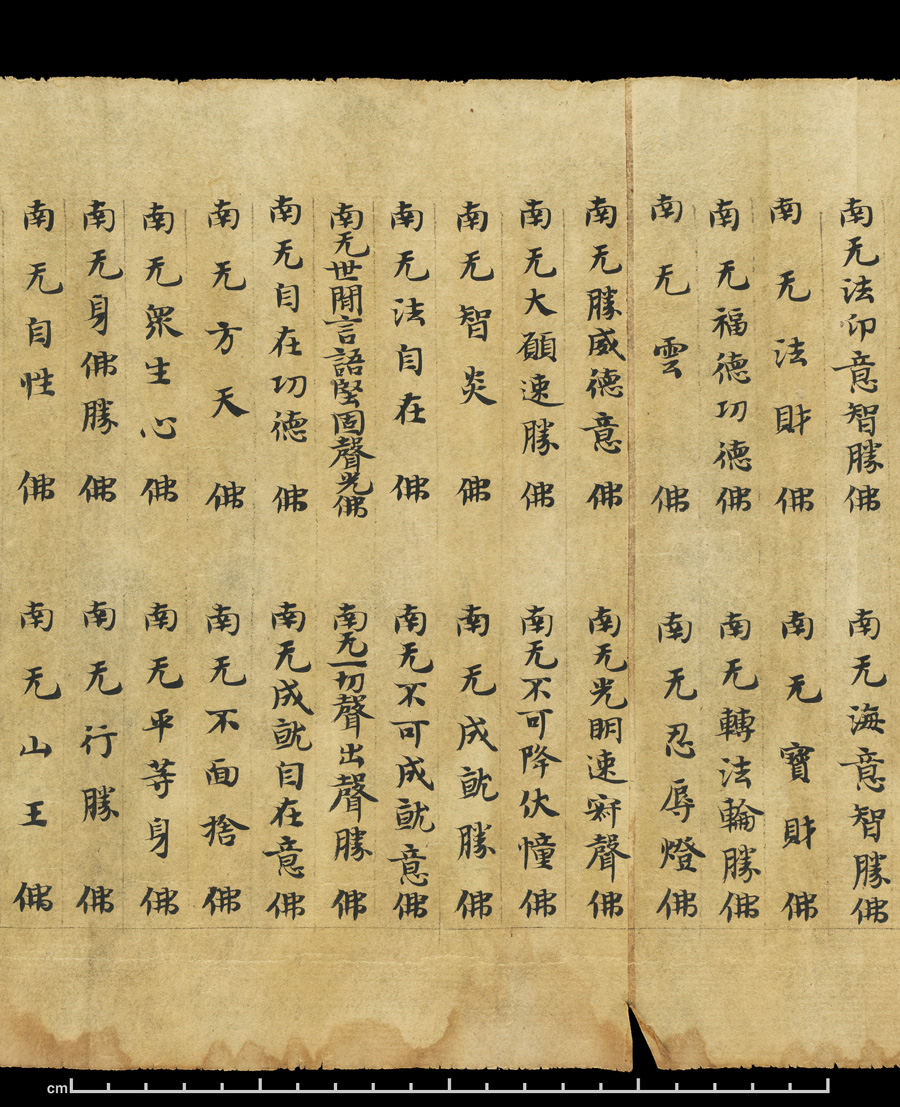 南无法印意智勝佛 南无海意智勝佛
南无法財佛 南无寶財佛
南无福德功德佛 南无轉法輪勝佛
南无雲佛 南无忍辱燈佛
南无勝威德意佛 南无光明速辭聲佛
南无大願速勝佛 南无不可降伏憧佛
南无智炎佛 南无成就勝佛
南无法自在佛 南无不可成就意佛
南无世間言語堅固聲光佛 南无一切聲出聲勝佛
南无自在功德佛 南无成就自在意佛
南无方天佛 南无不面捨佛
南无衆生心佛 南无平等身佛
南无身佛勝佛 南无行勝佛
南无自性佛 南无山王佛
cm